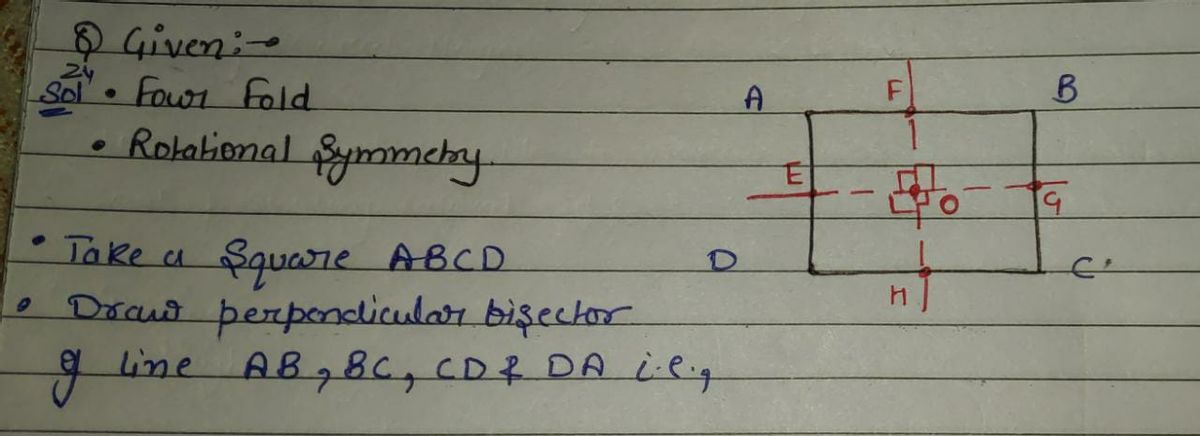 Q Given:→
24
Sol • Four Fold
• Rotational Symmetry.
• Take a Square ABCD
• Draw perpendicular bisector
of line AB, BC, CD & DA i.e.,
A F B
E O G
D H C